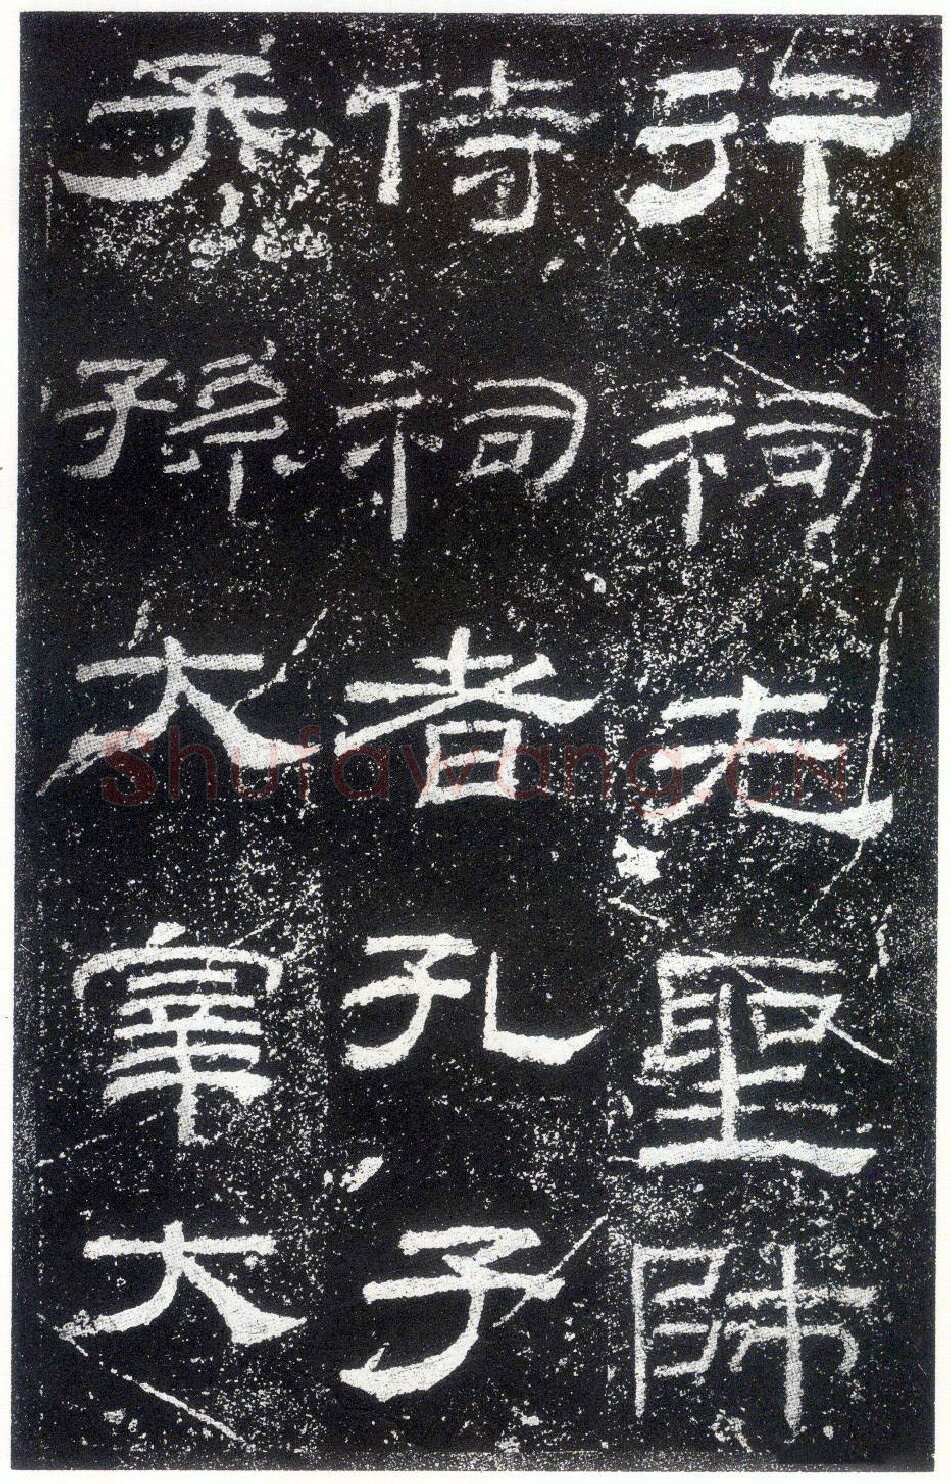 行祠先聖師
侍祠者孔子
子孫大宰大
Shufawang.CN